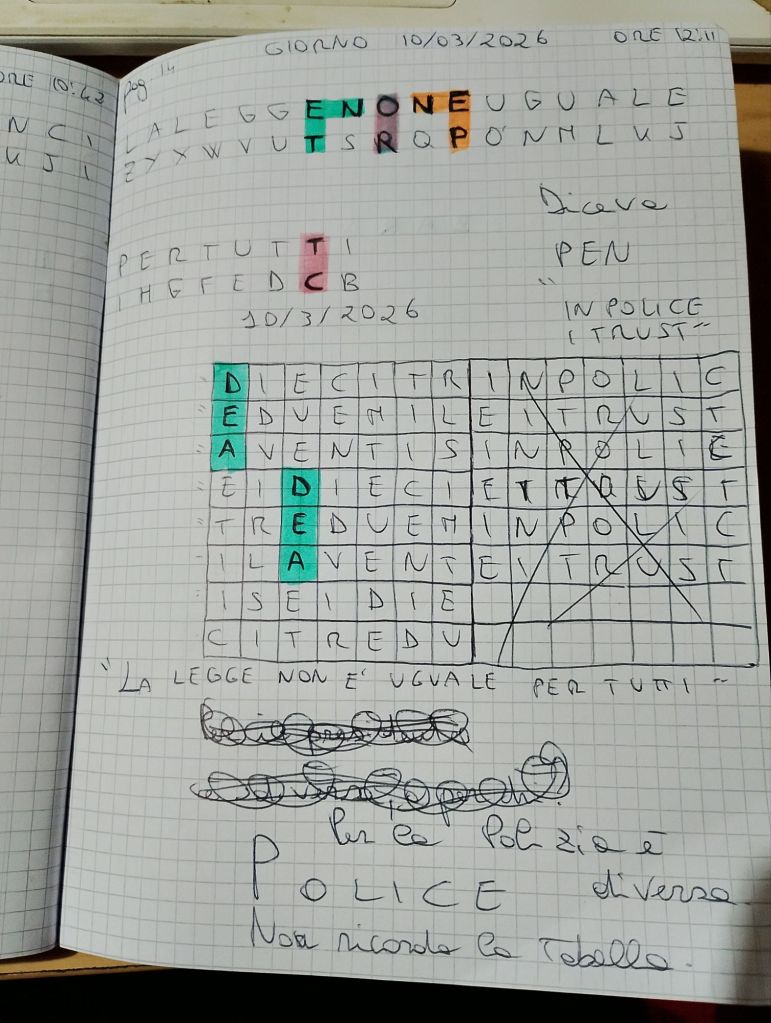 GIORNO 10/03/2026 ORE 12:11
ORE 10:42
pag 14
N C I
L A L E G G E N O N E U G U A L E
U J I
Z Y X W V U T S R Q P O N M L K J
Diceva
P E R T U T T I
PEN
I H G F E D C B
10/3/2026
"IN POLICE
I TRUST"
D I E C I T R I N P O L I C
E D U E M I L E I T R U S T
A V E N T I S I N P O L I C
E I D I E C I E I T R U S T
T R E D U E M I N P O L I C
I L A V E N T E I T R U S T
I S E I D I E
C I T R E D U
"LA LEGGE NON E' UGUALE PER TUTTI"
Per la Polizia è
POLICE diversa.
Non ricordo la Tabella.